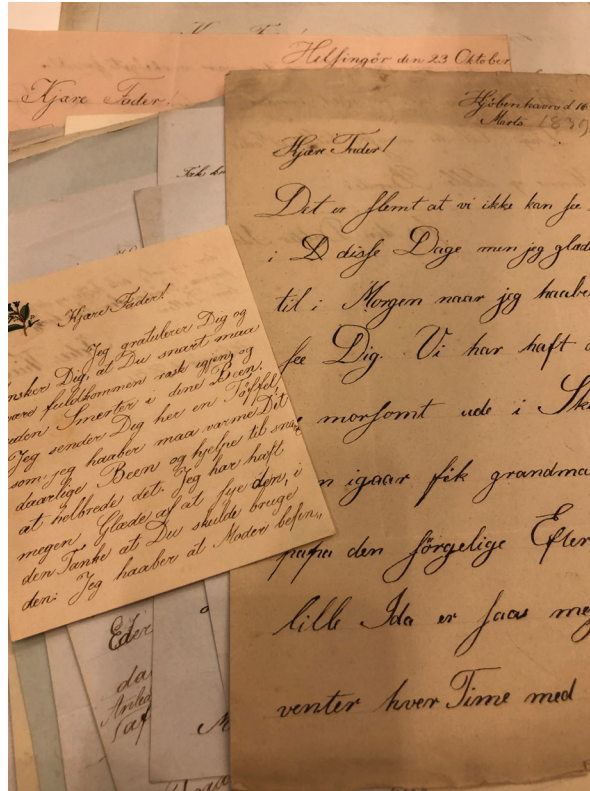 Helsingör den 23 Oktober
Kjære Fader!
Kjöbenhavn d 16
Marts 1839
Kjære Fader!
Det er slemt at vi ikke kan see
i D disse Dage men jeg glæd
til i Morgen naar jeg haaber
see Dig. Vi har haft
morsomt ude i Sk
igaar fik grandma
papa den sörgelige Efter
lille Ida er saa me
venter hver Time med
Kjære Fader!
Jeg gratulerer Dig og
önsker Dig, at Du snart maa
være fuldkommen rask igjen, og
uden Smerter i dine Been.
Jeg sender Dig her en Töffel,
som jeg haaber maa varme Dit
daarlige Been og hjelpe til snart
at helbrede det. Jeg har haft
megen Glæde af at sye den, i
den Tanke at Du skulde bruge
den; Jeg haaber at Moder befin,,
Eder
da